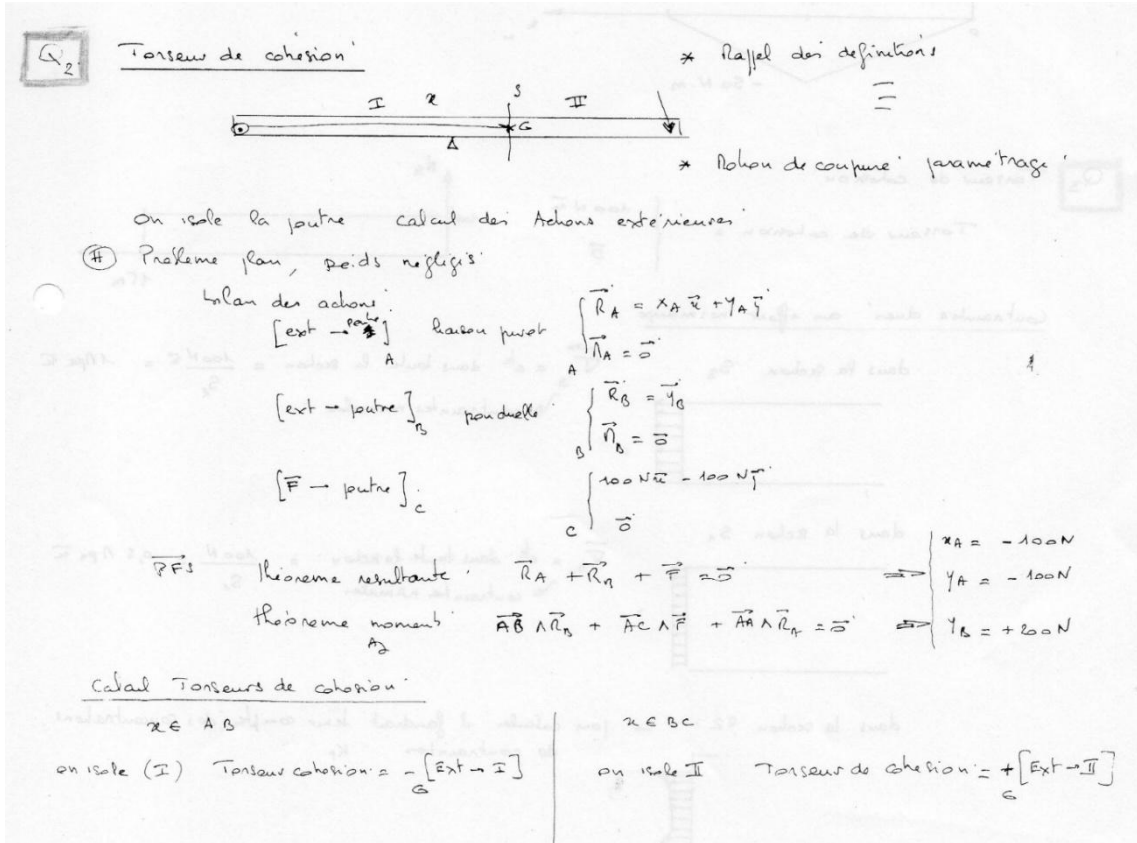 Q2. Torseur de cohésion
* Rappel des definitions
I x S II
G
Δ
* Notion de coupure paramétrage
on isole la poutre calcul des Actions extérieures
(H) Problème plan, poids négligés
bilan des actions
[ext → poutre]A liaison pivot A { R⃗A = xA x⃗ + yA y⃗
M⃗A = 0⃗
[ext → poutre]B ponctuelle B { R⃗B = y⃗B
M⃗B = 0⃗
[F⃗ → poutre]C C { 100 N x⃗ - 100 N y⃗
0⃗
PFS théorème resultante R⃗A + R⃗B + F⃗ = 0⃗ ⇒ | xA = -100N
yA = -100N
théorème moment AB⃗ ∧ R⃗B + AC⃗ ∧ F⃗ + AA⃗ ∧ R⃗A = 0⃗ ⇒ yB = +200N
Calcul Torseurs de cohésion
x ∈ AB
x ∈ BC
on isole (I) Torseur cohésion = -G[Ext → I]
on isole II Torseur de cohésion = +G[Ext → II]